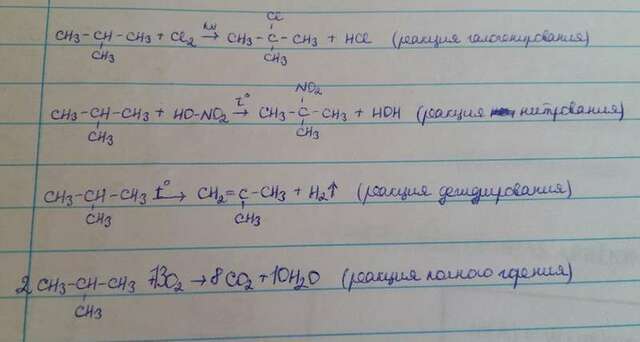 Cl
CH3-CH-CH3 + Cl2 hν→ CH3-C-CH3 + HCl (реакция галогенирования)
CH3 CH3
NO2
CH3-CH-CH3 + HO-NO2 t°→ CH3-C-CH3 + HOH (реакция нитрования)
CH3 CH3
CH3-CH-CH3 t°→ CH2=C-CH3 + H2↑ (реакция дегидрирования)
CH3 CH3
2 CH3-CH-CH3 + 13O2 → 8CO2 + 10H2O (реакция полного горения)
CH3